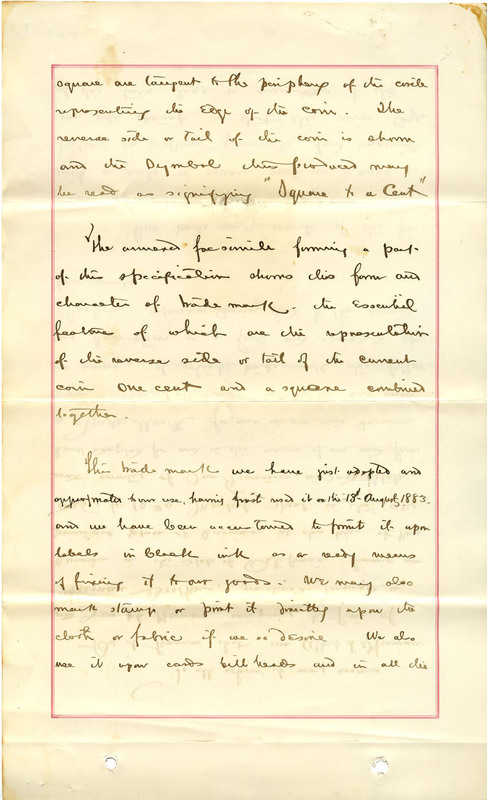 square are tangent to the periphery of the circle
representing the Edge of the Coin. The
reverse side or tail of the coin is shown
and the Symbol thus produced may
be read as signifying "Square to a Cent"
The annexed facsimile forming a part
of this specification shows this form and
character of trade mark. the Essential
feature of which are the representation
of the reverse side or tail of the current
coin One cent and a square combined
together.
This trade mark we have just adopted and
appropriated to our use, having first used it on the August, 1883.
and we have been accustomed to print it upon
labels in black ink as a ready means
of fixing it to our goods. We may also
mark stamp or print it directly upon the
cloth or fabric if we so desire We also
use it upon cards bill heads and in all the